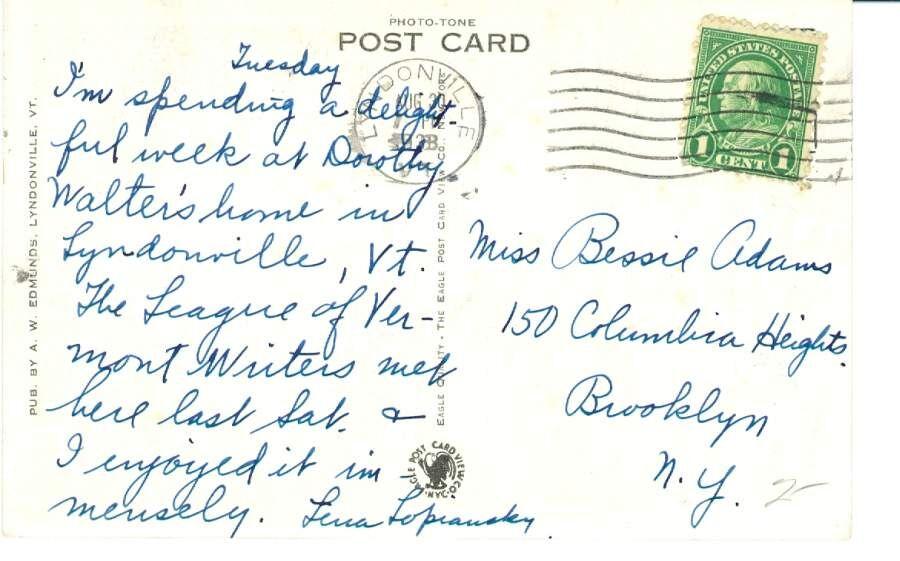 PHOTO-TONE
POST CARD
Tuesday
I'm spending a delight-
ful week at Dorothy
Walter's home in
Lyndonville, Vt.
The League of Ver-
mont Writers met
here last Sat. &
I enjoyed it im
mensely. Lena Lopiansky
PUB. BY A. W. EDMUNDS, LYNDONVILLE, VT.
EAGLE QUALITY - THE EAGLE POST CARD VIEW CO., NEW YORK
EAGLE POST CARD VIEW CO. N.Y.
LYNDONVILLE
AUG 30
UNITED STATES POSTAGE
1 CENT 1
Miss Bessie Adams
150 Columbia Heights.
Brooklyn
N.Y.